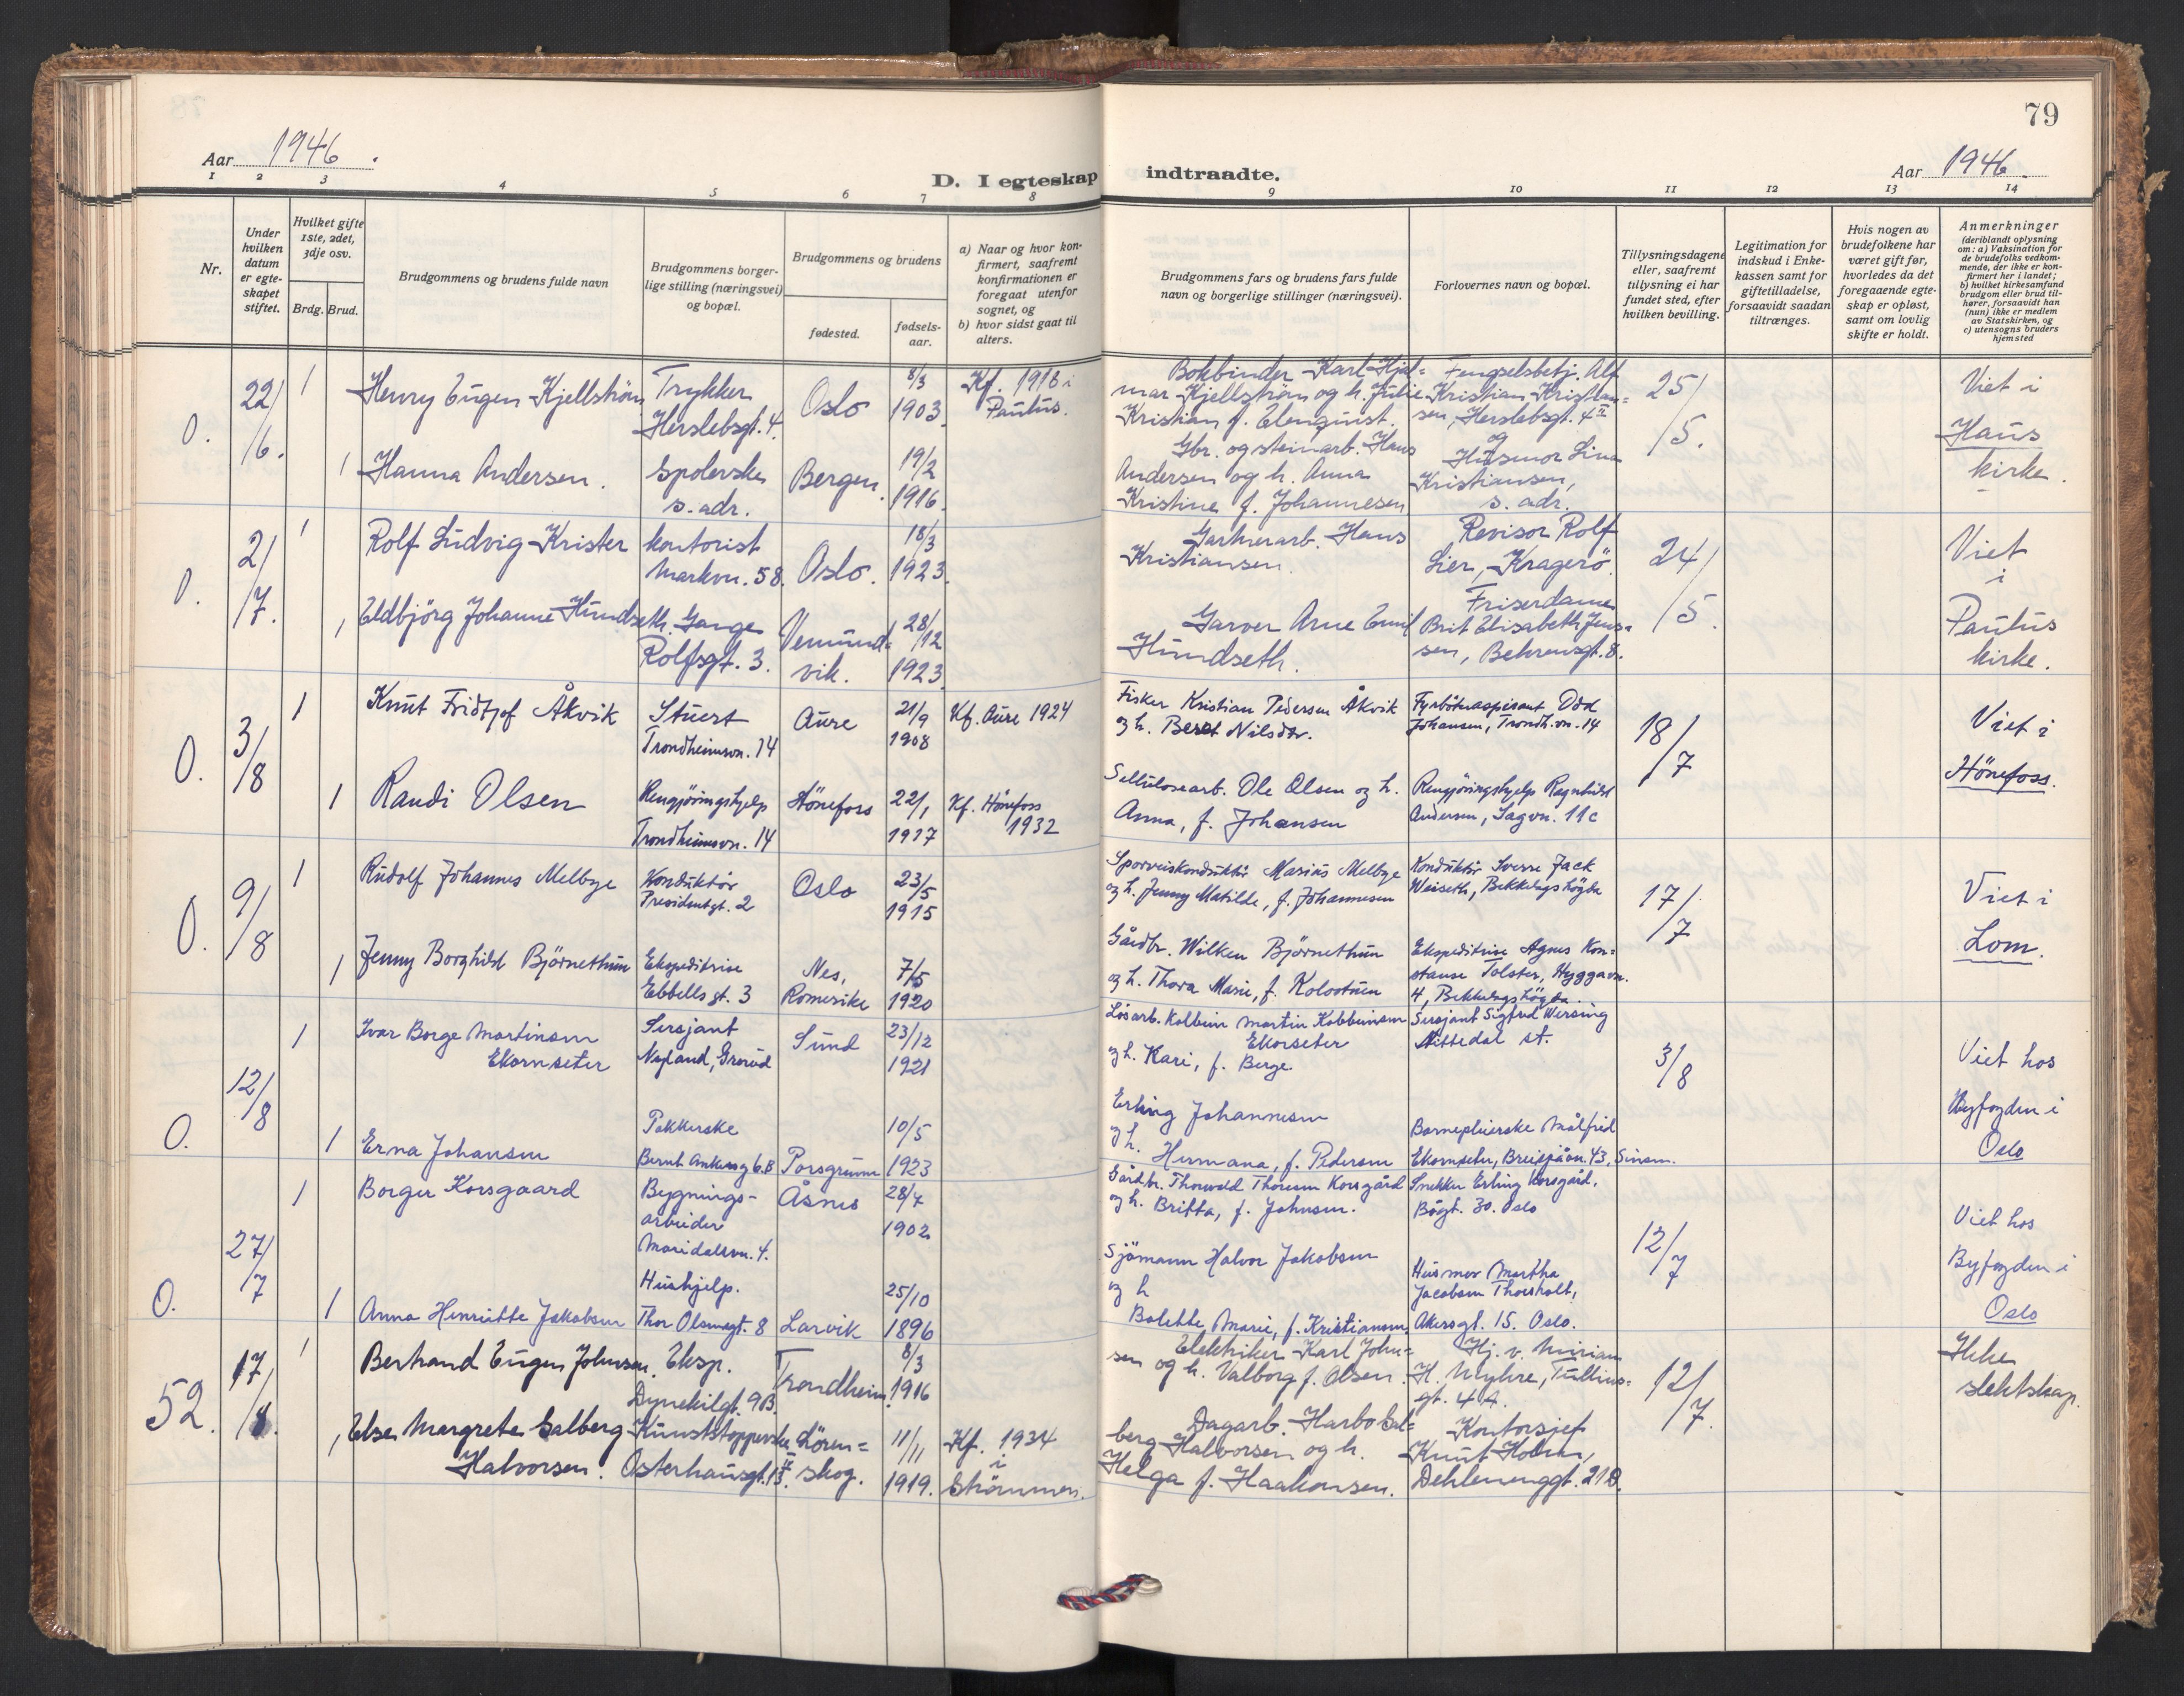 79
Aar 1946.
Aar 1946.
D. I egteskap indtraadte.
1 2 3 4 5 6 7 8 9 10 11 12 13 14
Nr.
Under hvilken datum er egteskapet stiftet.
Hvilket gifte 1ste, 2det, 3dje osv.
Brdg. Brud.
Brudgommens og brudens fulde navn
Brudgommens borgerlige stilling (næringsvei) og bopæl.
Brudgommens og brudens
fødested.
fødselsaar.
a) Naar og hvor konfirmert, saafremt konfirmationen er foregaat utenfor sognet, og
b) hvor sidst gaat til alters.
Brudgommens fars og brudens fars fulde navn og borgerlige stillinger (næringsvei).
Forlovernes navn og bopæl.
Tillysningsdagene eller, saafremt tillysning ei har fundet sted, efter hvilken bevilling.
Legitimation for indskud i Enkekassen samt for giftetilladelse, forsaavidt saadan tiltrænges.
Hvis nogen av brudefolkene har været gift før, hvorledes da det foregaaende egteskap er opløst, samt om lovlig skifte er holdt.
Anmerkninger
(deriblandt oplysning om: a) Vaksination for de brudefolks vedkommende, der ikke er konfirmert her i landet;
b) hvilket kirkesamfund brudgom eller brud tilhører, forsaavidt han (hun) ikke er medlem av Statskirken, og
c) utensogns bruders hjemsted
0. 22/6. 1 Henry Eugen Kjellström Trykker Herslebsgt. 4. Oslo 8/3 1903. Kf. 1918 i Paulus.
Bokbinder Karl Hjal=
mar Kjellström og h. Julie
Kristian f. Elenquist.
Fengselsbetj. Alf
Kristian Kristian=
sen, Herslebsgt. 4 II
og
25/5.
Viet i
Haus
kirke.
1 Hanna Andersen. Spolerske s. adr. Bergen. 19/2 1916.
Gbr. og steinarb. Hans
Andersen og h. Anna
Kristine f. Johannesen
Husmor Lina
Kristiansen,
s. adr.
0. 2/7. 1 Rolf Ludvig Krister kontorist Markvn. 58. Oslo. 18/3 1923.
Gartnerarb. Hans
Kristiansen.
Revisor Rolf
Lier, Kragerö.
24/5.
Viet
i
Paulus
kirke.
1 Eldbjörg Johanne Hundseth. Gange Rolfsgt. 3. Vemund=vik. 28/12 1923.
Garver Arne Emil
Hundseth.
Friserdame
Brit Elisabeth Jens=
sen, Behrensgt. 8.
0. 3/8 1 Knut Fridtjof Åkvik Stuert Trondheimsvn. 14 Aure 21/9 1908 Kf. Aure 1924
Fisker Kristian Pedersen Åkvik
og h. Beret Nilsdtr.
Fyrböteraspirant Odd
Johansen, Trondh.vn. 14
18/7
Viet i
Hönefoss.
1 Randi Olsen Rengjöringshjelp Trondheimsvn. 14 Hönefoss 22/1 1917 Kf. Hönefoss 1932
Cellulosearb. Ole Olsen og h.
Anna, f. Johansen
Rengjöringshjelp Ragnhild
Andersen, Sagvn. 11c
0. 9/8 1 Rudolf Johannes Melbye Konduktör Presidentgt. 2 Oslo 23/5 1915
Sporveiskonduktör Marius Melbye
og h. Jenny Matilde, f. Johannesen
Konduktör Sverre Jack
Weiseth, Bekkelagshögda
17/7
Viet i
Lom.
1 Jenny Borghild Björnethun Ekspeditrise Ebbells gt. 3 Nes, Romerike 7/5 1920
Gårdbr. Wilken Björnethun
og h. Thora Marie, f. Kolostuen
Ekspeditrise Agnes Kon=
stanse Tolster, Hyggavn.
4, Bekkelagshögda.
0. 12/8 1 Ivar Borge Martinsen Ekornseter Sersjant Nyland, Grorud Sund 23/12 1921
Lösarb. Kolbein Martin Kolbeinsen
Ekorseter
og h. Kari, f. Berge
Sersjant Sigfred Wersing
Nittedal st.
3/8
Viet hos
Byfogden i
Oslo
1 Erna Johansen Pakkerske Bernt Ankersg 6.B Porsgrunn 10/5 1923
Erling Johannesen
og h.
Hermana, f. Pedersen
Barnepleierske Målfrid
Ekornseter, Breisjåvn. 43, Sinsen.
0. 27/7 1 Borger Korsgaard Bygnings-arbeider Maridalsvn. 4. Åsnes 28/4 1902
Gårdbr. Thorvald Thoresen Korsgård
og h. Britta, f. Johnsen.
Snekker Erling Korsgård.
Bögt. 30. Oslo
12/7
Viet hos
Byfogden i
Oslo
1 Anna Henriette Jakobsen Hushjelp. Thor Olsensgt. 8 Larvik 25/10 1896
Sjömann Halvor Jakobsen
og h
Bolette Marie, f. Kristiansen.
Husmor Martha
Jacobsen Thorsholt,
Akersgt. 15. Oslo.
52. 17/8. 1 Bertrand Eugen Johnsen. Eksp. Dynekilgt. 9B. Trondheim. 8/3 1916
Elektriker Karl John=
sen og h. Valborg f. Olsen.
Hj. v. Miriam
H. Myhre, Tullins=
gt. 4A.
12/7.
Ikke
slektskap.
1 Else Margrete Salberg Halvorsen. Kunststopperske, Osterhausgt. 13 II. Lören=skog. 11/11 1919. Kf. 1934 i Strömmen.
Dagarb. Harbo Sal=
berg Halvorsen og h.
Helga f. Haakonsen.
Kontorsjef
Knut Holm,
Dehlenenggt. 21B.